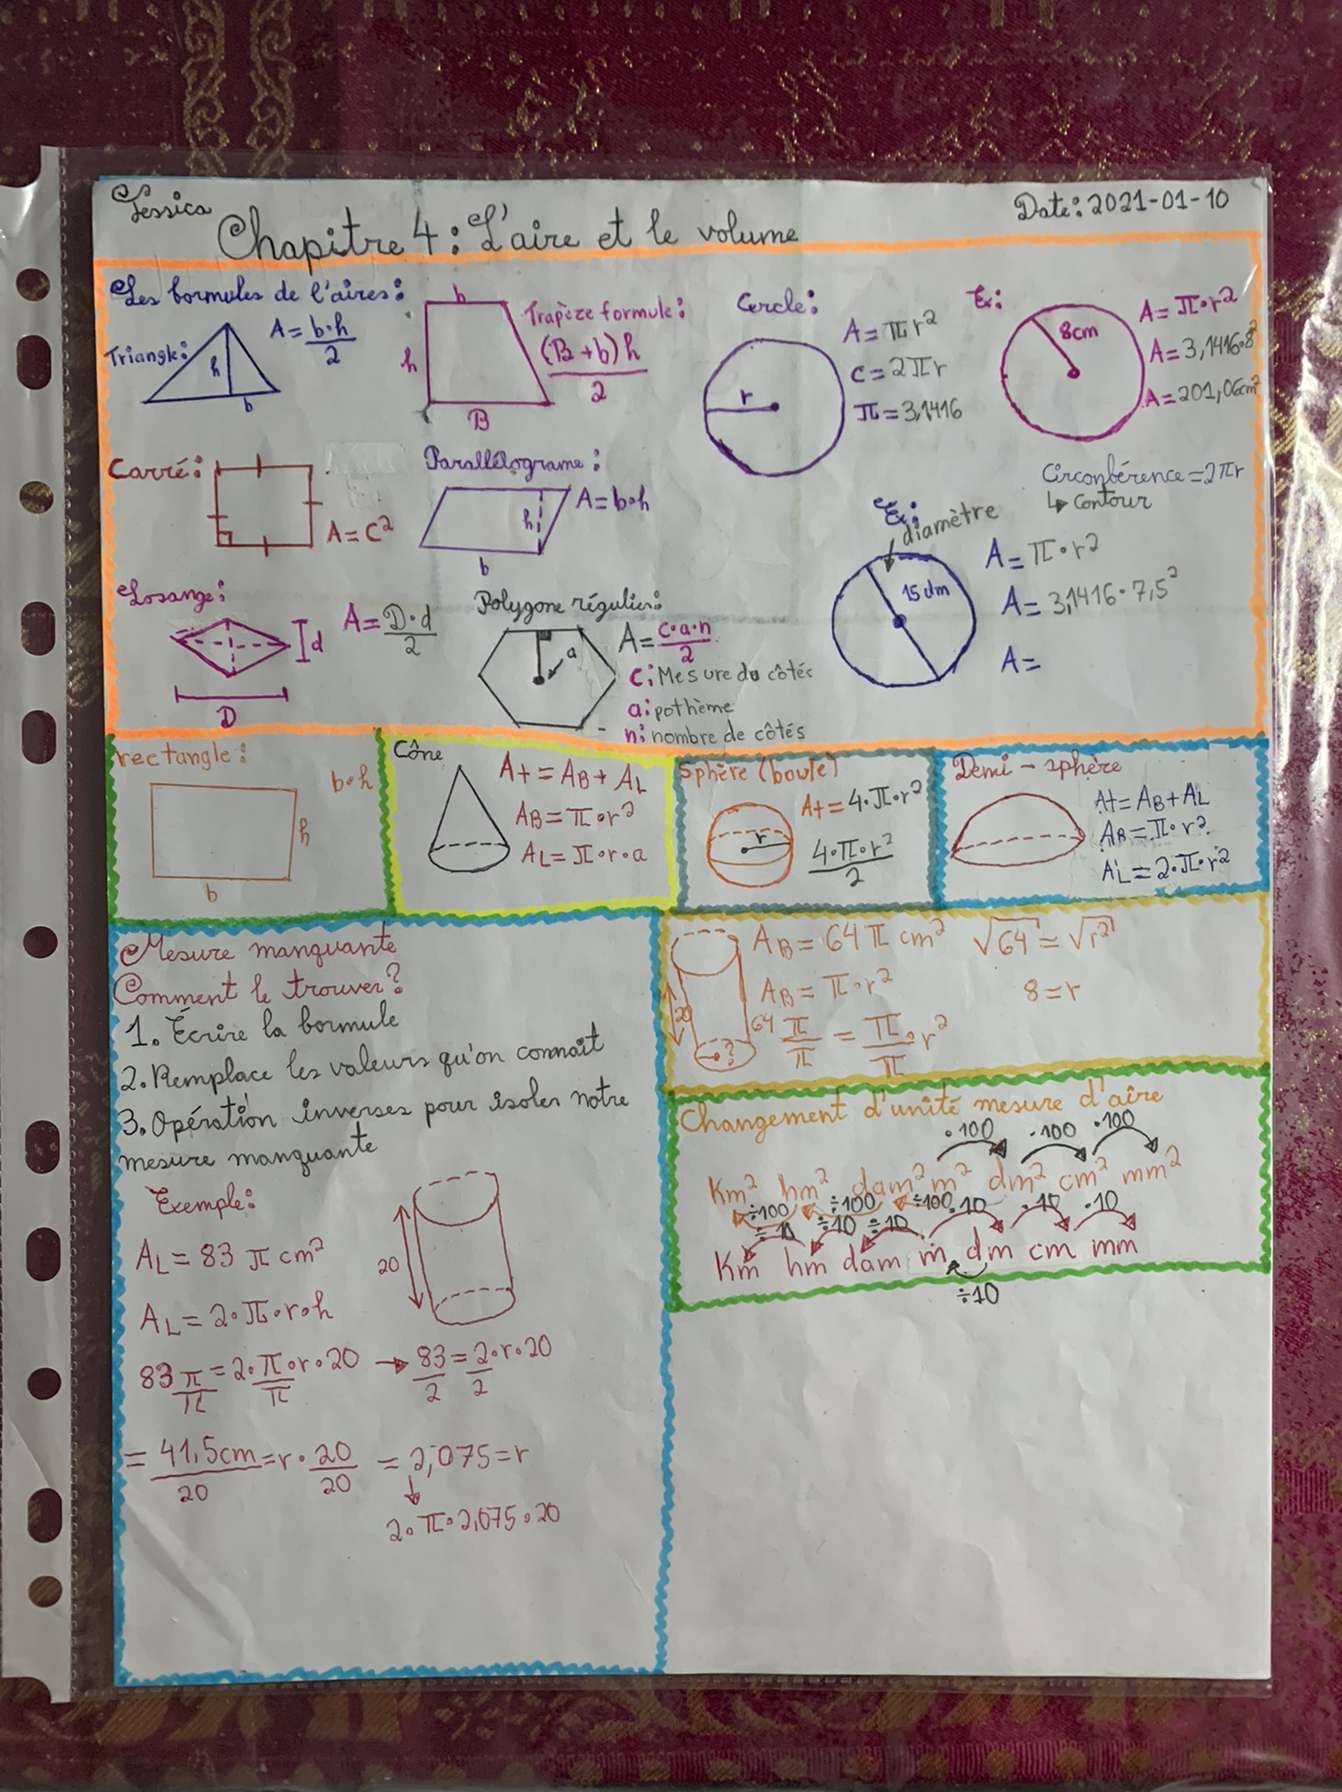 Jessica
Date: 2021-01-10
Chapitre 4: L'aire et le volume
Les formules de l'aires:
Triangle:
h
b
A = b·h / 2
b
h
B
Trapèze formule:
(B + b) h / 2
Cercle:
r
A = πr²
C = 2πr
π = 3,1416
Ex:
8cm
A = π·r²
A = 3,1416·8²
A = 201,06cm²
Carré:
A = C²
Parallélograme:
h
b
A = b·h
Circonférence = 2πr
↳ Contour
Ex:
diamètre
15 dm
A = π·r²
A = 3,1416·7,5²
A =
Losange:
d
D
A = D·d / 2
Polygone régulier:
a
A = c·a·n / 2
C: Mesure du côtés
a: pothème
n: nombre de côtés
rectangle:
b·h
h
b
Cône
At = AB + AL
AB = π·r²
AL = π·r·a
Sphère (boule)
r
At = 4·π·r²
4·π·r² / 2
Demi-sphère
At = AB + AL
AB = π·r²
AL = 2·π·r²
Mesure manquante
Comment le trouver?
1. Écrire la formule
2. Remplace les valeurs qu'on connaît
3. Opération inverses pour isoler notre
mesure manquante
Exemple:
AL = 83 π cm²
20
AL = 2·π·r·h
83 π/π = 2·π/π·r·20 → 83/2 = 2/2·r·20
= 41,5cm/20 = r·20/20 = 2,075 = r
↓
2·π·2,075·20
20
?
AB = 64 π cm²
AB = π·r²
64 π/π = π/π·r²
√64 = √r²
8 = r
Changement d'unité mesure d'aire
·100 ·100 ·100
Km² hm² dam² m² dm² cm² mm²
÷100 ÷100 ÷100
÷10 ÷10 ÷10 ·10 ·10 ·10
Km hm dam m dm cm mm
÷10